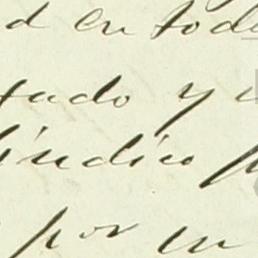 d en tod
tado y
indico p
por en